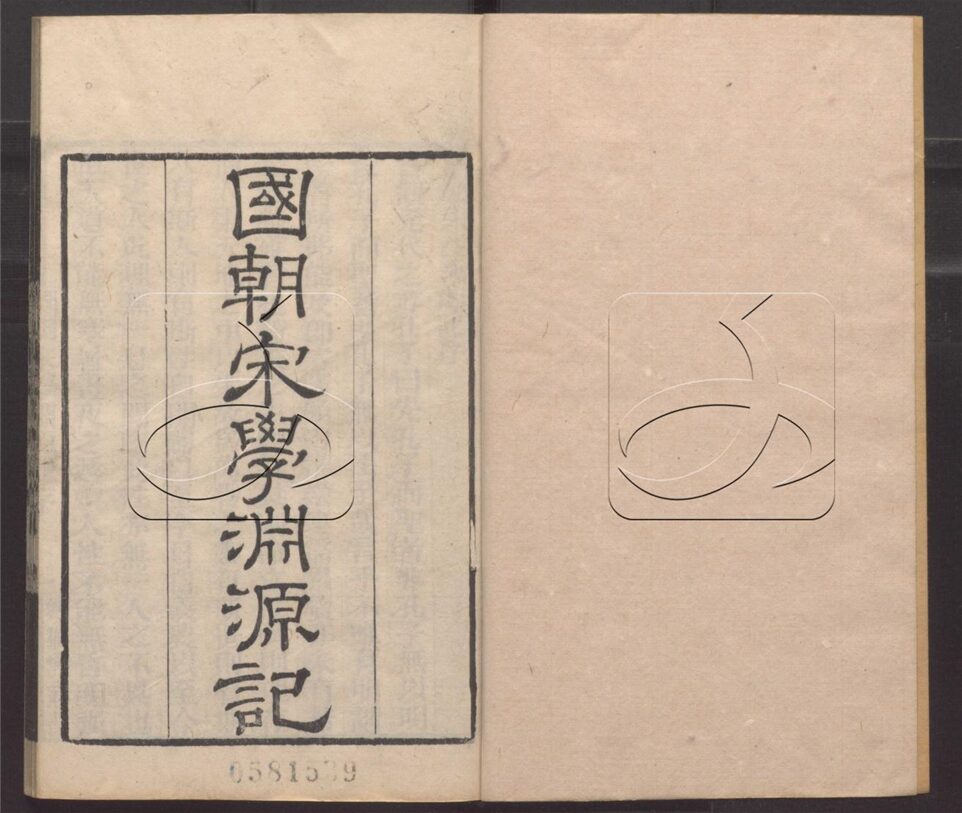 國朝宋學淵源記
0581539